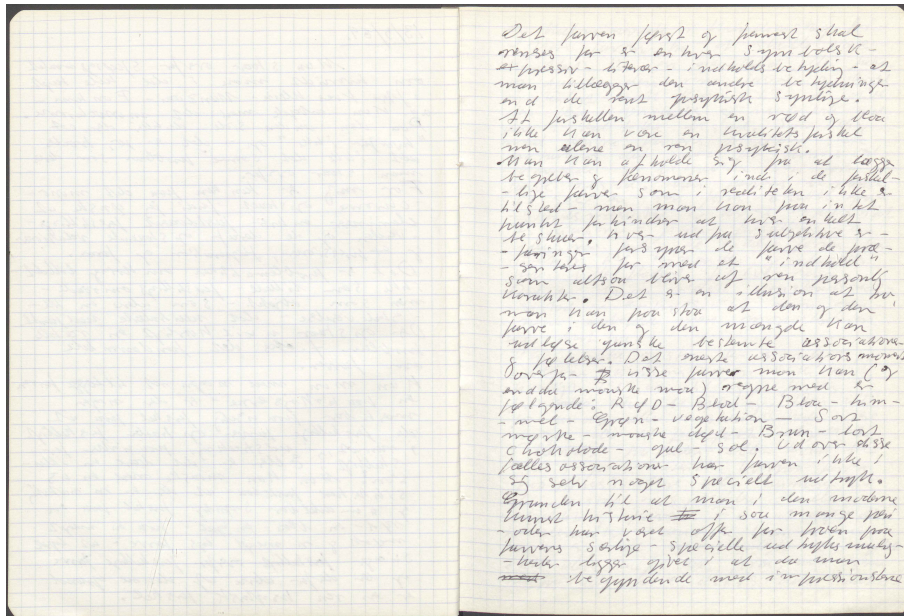 Det farven først og fremmest skal
renses for er en hver symbolsk-
expressiv - literær - indholdsbetydning - at
man tillægger den andre betydninger
end de rent psykisk synlige.
At forskellen mellem en rød og blaa
ikke kan være en kvalitetsforskel
men alene en ren psykisk.
Man kan afholde sig fra at lægge
begreber og fænomener ind i de forskel-
-lige farver som i realiteten ikke er
tilsted - men man kan paa intet
punkt forhindre at hver enkelt
beskuer, hver ud fra subjektive er-
-faringer forsyner de farve de præ-
-senteres for med et "indhold"
som altsaa bliver af ren personlig
karakter. Det er en illusion at
man kan paastaa at den og den
farve i den og den mængde kan
udløse ganske bestemte associationer
og følelser. Det eneste associationsmoment
overfor visse farver man kan (og
endda maaske maa) regne med er
følgende: Rød - Blod - Blaa - him-
-mel - Grøn - vegetation - Sort
mørke - maaske død - Brun - lort
chokolade - gul - sol. Ud over disse
fællesassociationer har farven ikke i
sig selv noget specielt udtryk.
Grunden til at man i den moderne
kunst historie i saa mange peri-
-oder har været offer for troen paa
farvens særlige - specielle udtryksmulig-
-heder ligger givet i at da man
begyndende med impressionisterne